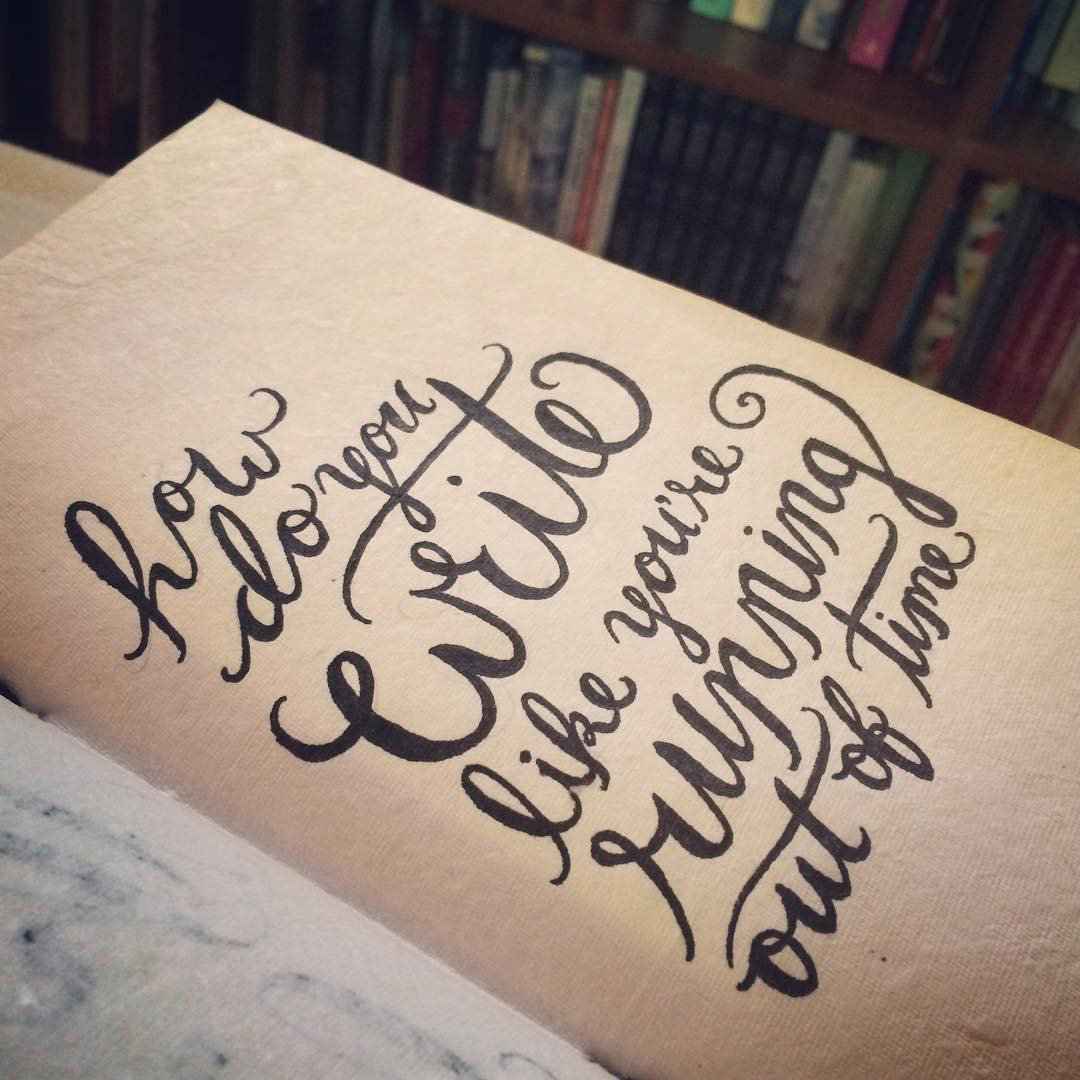 how
do you
write
like you're
running
out of time